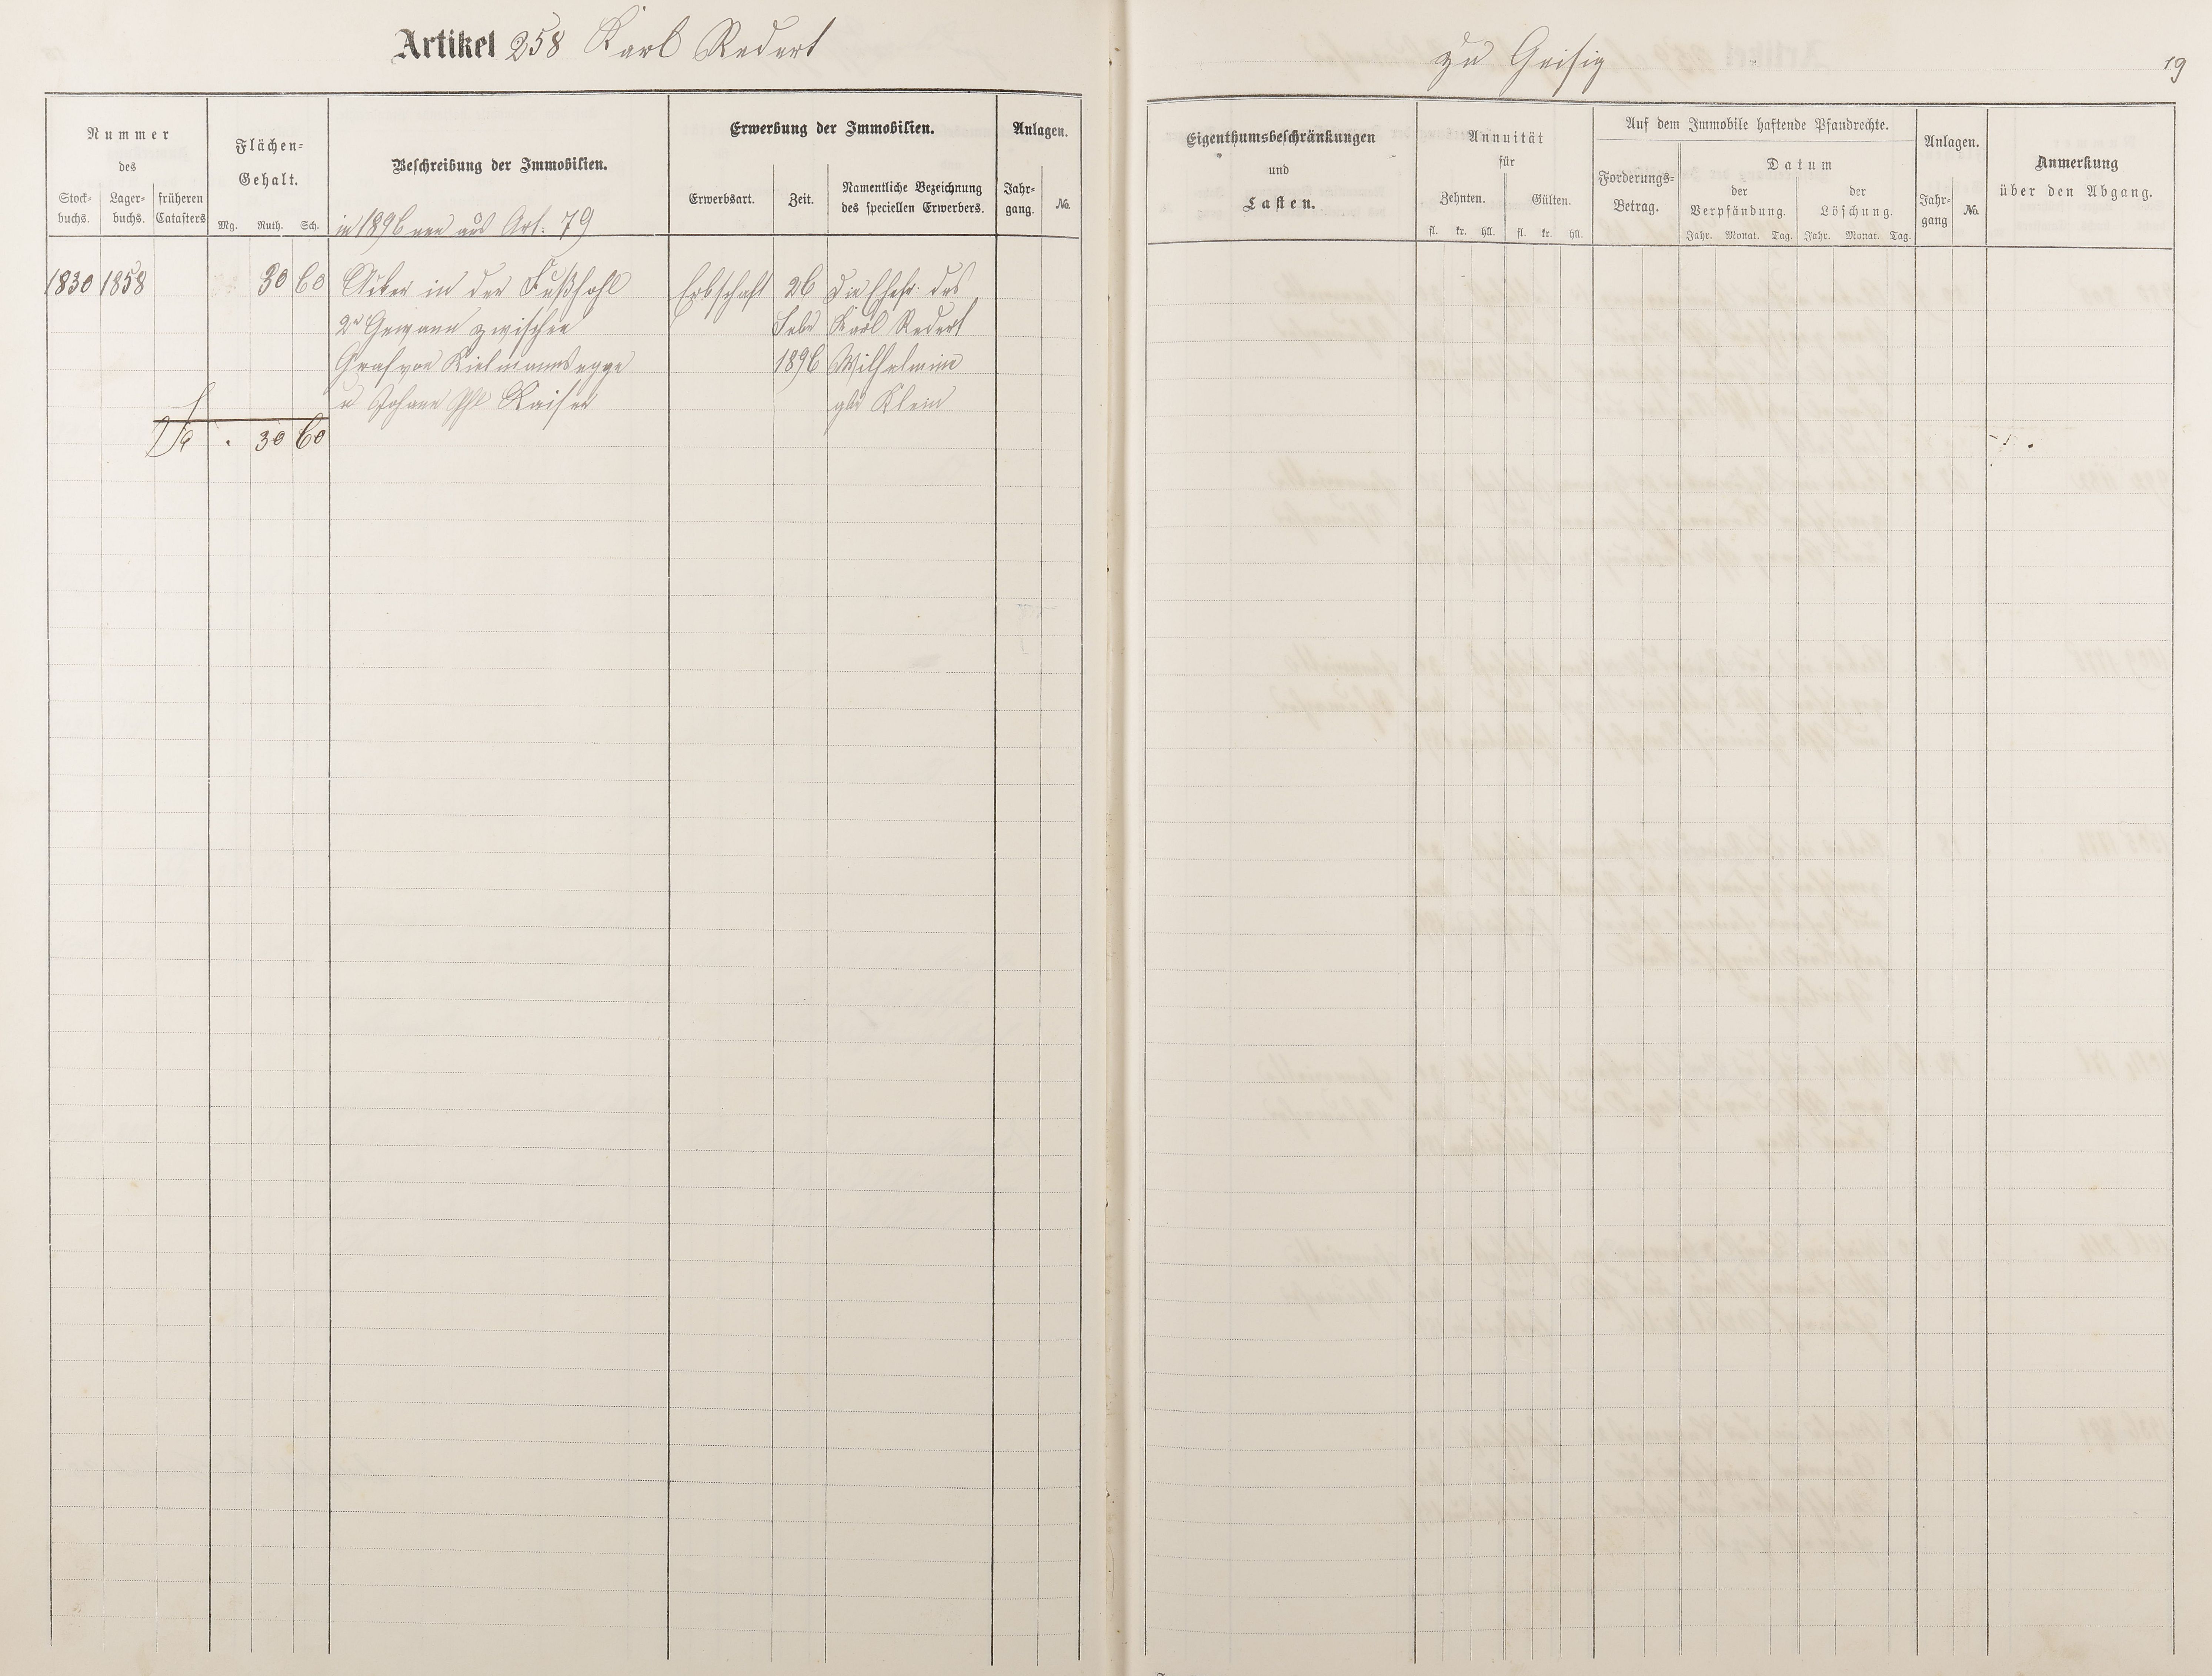 Artikel 258 Karl Redert
zu Geisig
19
Nummer
des
Stock-
buchs.
Lager-
buchs.
früheren
Catasters
Flächen-
Gehalt.
Mg. Ruth. Sch.
Beschreibung der Immobilien.
in 1896 neu aus Art. 79
Erwerbung der Immobilien.
Erwerbsart.
Zeit.
Namentliche Bezeichnung
des speciellen Erwerbers.
Anlagen.
Jahr-
gang.
No.
Eigenthumsbeschränkungen
und
Lasten.
Annuität
für
Zehnten.
Gülten.
fl. kr. hll. fl. kr. hll.
Auf dem Immobile haftende Pfandrechte.
Forderungs-
Betrag.
Datum
der
Verpfändung.
der
Löschung.
Jahr. Monat. Tag. Jahr. Monat. Tag.
Anlagen.
Jahr-
gang
No.
Anmerkung
über den Abgang.
1830 1858 30 60 Acker in der Fußhohl Erbschaft 26 die Ehefr. des
2r Gewann zwischen Febr Karl Redert
Graf von Kielmannsegge 1896 Wilhelmine
u Johann Phl Kaiser gb Klein
30 60